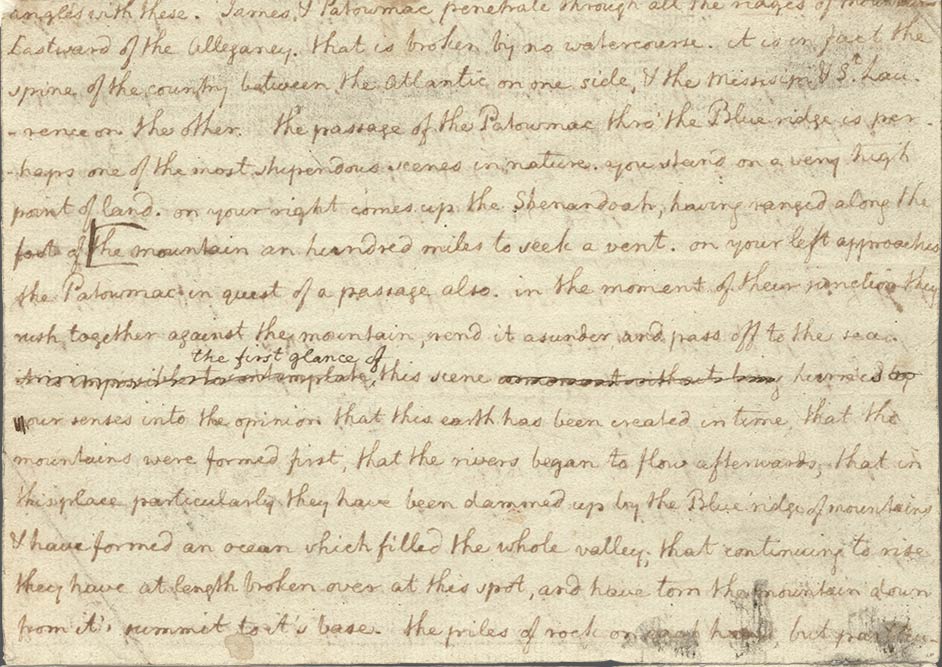 angles with these. James, & Patowmac penetrate through all the ridges of mountains
Eastward of the Alleganey. that is broken by no watercourse. it is in fact the
spine of the country between the Atlantic on one side, & the Missisipi & St. Lau-
-rence on the other. the passage of the Patowmac thro' the Blue ridge is per-
-haps one of the most stupendous scenes in nature. you stand on a very high
point of land. on your right comes up the Shenandoah, having ranged along the
foot of the mountain an hundred miles to seek a vent. on your left approaches
the Patowmac in quest of a passage also. in the moment of their junction they
rush together against the mountain, rend it asunder, and pass off to the sea.
the first glance of
it is impossible to contemplate this scene a moment without being hurried
your senses into the opinion that this earth has been created in time, that the
mountains were formed first, that the rivers began to flow afterwards, that in
this place particularly they have been dammed up by the Blue ridge of mountains
& have formed an ocean which filled the whole valley; that continuing to rise
they have at length broken over at this spot, and have torn the mountain down
from it's summit to it's base. the piles of rock on each hand, but particu-